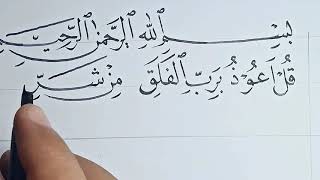 بِسْمِ اللهِ الرَّحْمٰنِ الرَّحِيْمِ
قُلْ اَعُوْذُ بِرَبِّ الْفَلَقِ مِنْ شَرِّ